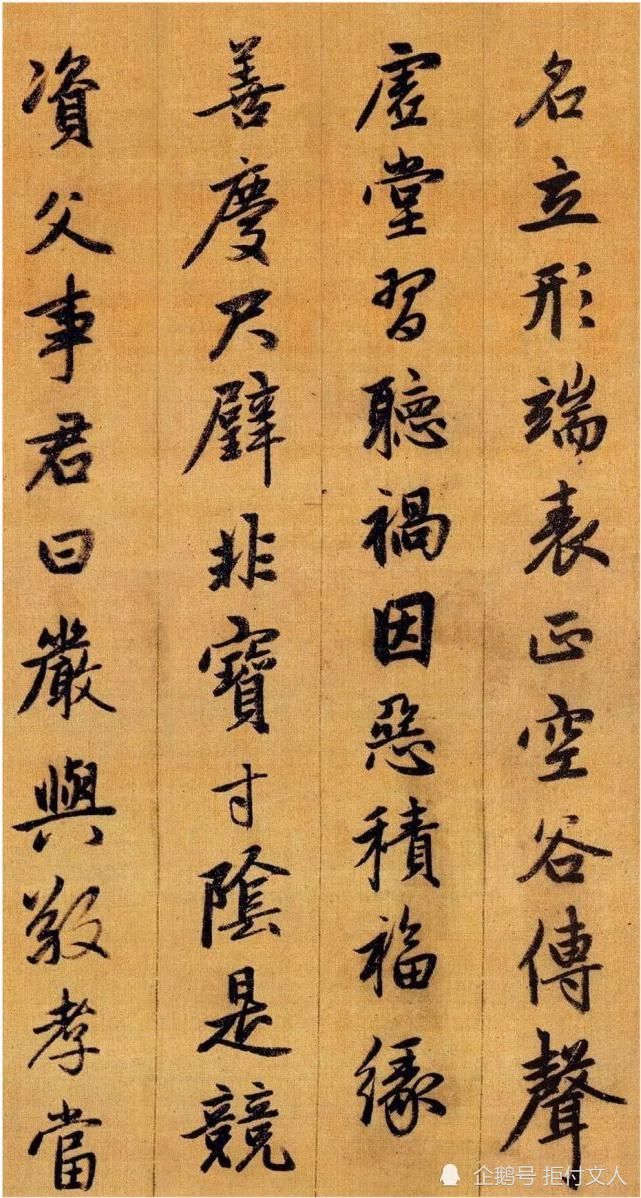 名立形端表正空谷傳聲
虛堂習聽禍因惡積福緣
善慶尺璧非寶寸陰是競
資父事君曰嚴與敬孝當
企鹅号 拒付文人